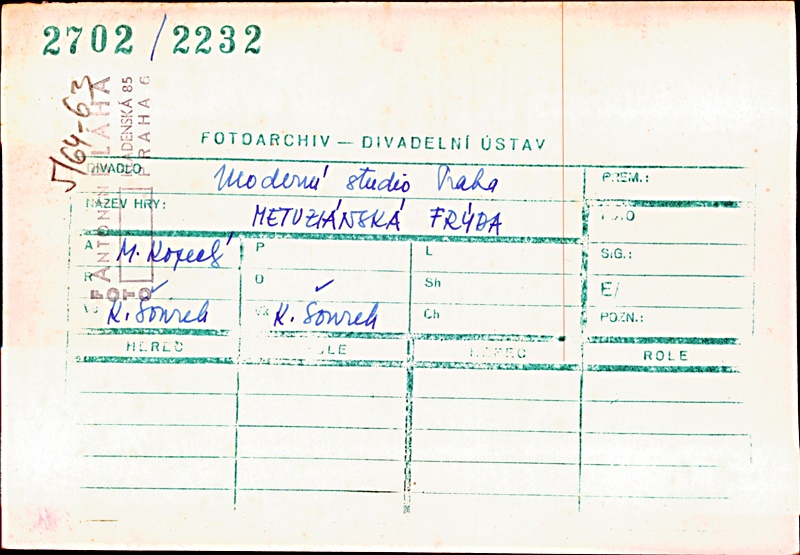 2702 / 2232
5/64-63
FOTO ANTONÍN BLÁHA
PRAHA 6
FOTOARCHIV — DIVADELNÍ ÚSTAV
DIVADLO Moderní studio Praha PREM.:
NÁZEV HRY: METUZIÁNSKÁ FRÝDA FOTO
A M. Kopecký P L SIG.:
R D Sh E/
VS K. Šourek VK K. Šourek Ch POZN.:
HEREC ROLE HEREC ROLE